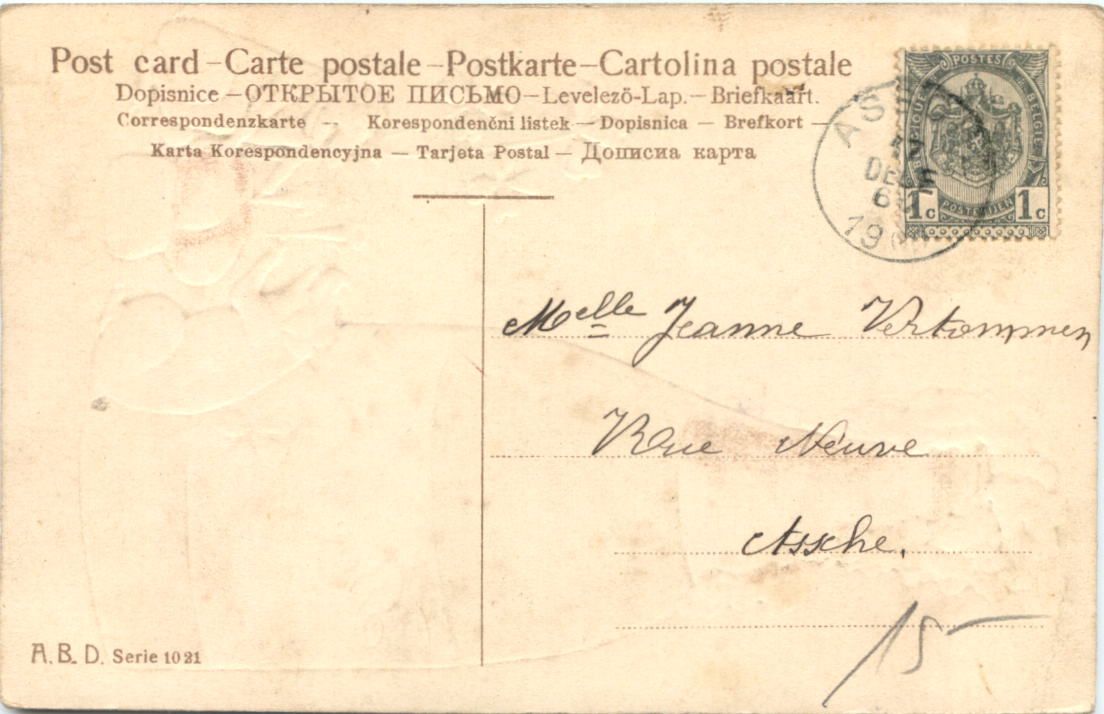 Post card – Carte postale – Postkarte – Cartolina postale
Dopisnice – ОТКРЫТОЕ ПИСЬМО – Levelezö-Lap. – Briefkaart.
Correspondenzkarte – Korespondenčni listek – Dopisnica – Brefkort –
Karta Korespondencyjna – Tarjeta Postal – Дописна карта
POSTES
BELGIQUE
BELGIE
POSTERIJEN
1c 1c
DEC
Melle Jeanne Vertommen
Rue Neuve
Assche.
15
A. B. D. Serie 1021